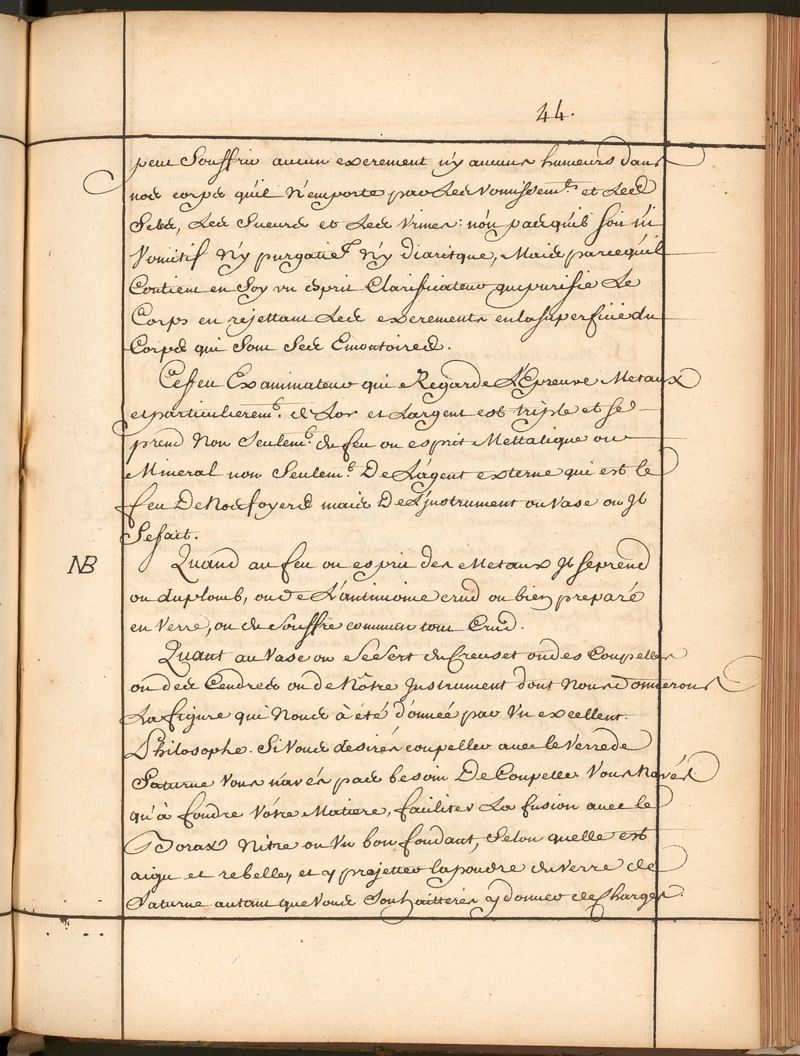 44.
peut Souffrir aucun excrement n'y aucuns humeurs dans
nos corps qu'il N'emporte par Les Vomissem.ts et Les
Selles, Les Sueurs et Les Vrines: non pas qu'il soit ni
Vomitif N'y purgatif N'y diaritque, Mais parcequ'il
Contient en Soy vn esprit Clarificateur qui purifie Le
Corps en rejettant Les excrements en la superficie du
Corps qui Sont Ses Emontoires.
Ce feu Examinateur qui Regarde L'Epreuve Metaux
et particulierem.t de L'or et L'argent est triple et se
prend Non Seulem.t du feu ou esprit Mettalique ou
Mineral non Seulem.t De L'agent externe qui est le
feu De Nos foyers mais De L'jnstrument ou Vase ou Jl
Se fait.
NB
Quand au feu ou esprit des Metaux Jl se prend
ou du plomb, ou de L'antimoine crud ou bien preparé
en Verre, ou du Souffre commun tout Crud.
Quant au Vase on Se Sert du Creuset ou des Coupelles
ou des Cendres ou de Nôtre Jnstrument dont Nous Donnerons
La figure qui Nous à été d'onnée par Vn excellent
Philosophe. Si Vous desirés coupeller avec le Verre de
Saturne Vous n'avés pas besoin De Coupelles Vous N'avés
qu'à fondre Vôtre Matiere, faciliter La fusion avec le
Borax Nitre ou Vn bon fondant, Selon quelle est
aigre et rebelle, et y projetter la poudre du Verre de
Saturne autant que Vous Souhaitterés y donner de Charges.